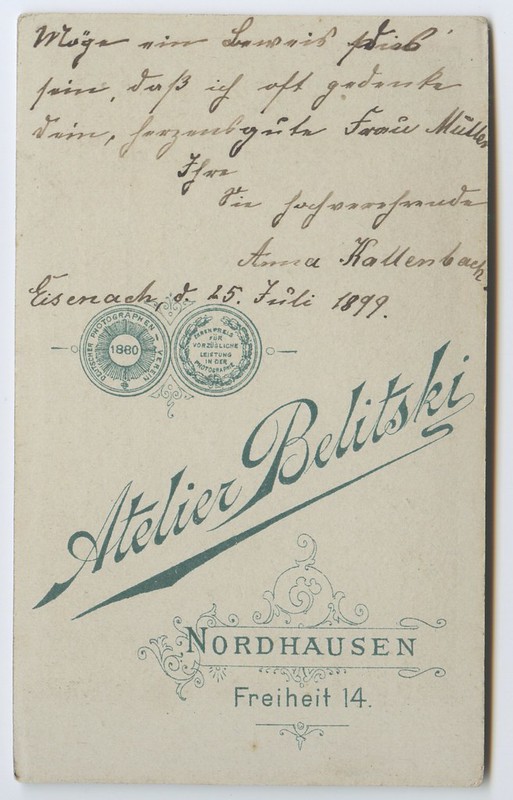 Möge ein Beweis dies
sein, daß ich oft gedenke
Dein, herzensgute Frau Müller
Ihre
Sie hochverehrende
Anna Kallenbach.
Eisenach, d. 25. Juli 1899.
DEUTSCHER PHOTOGRAPHEN-VEREIN
1880
EHRENPREIS
FÜR
VORZÜGLICHE
LEISTUNG
IN DER
PHOTOGRAPHIE
Atelier Belitski
NORDHAUSEN
Freiheit 14.